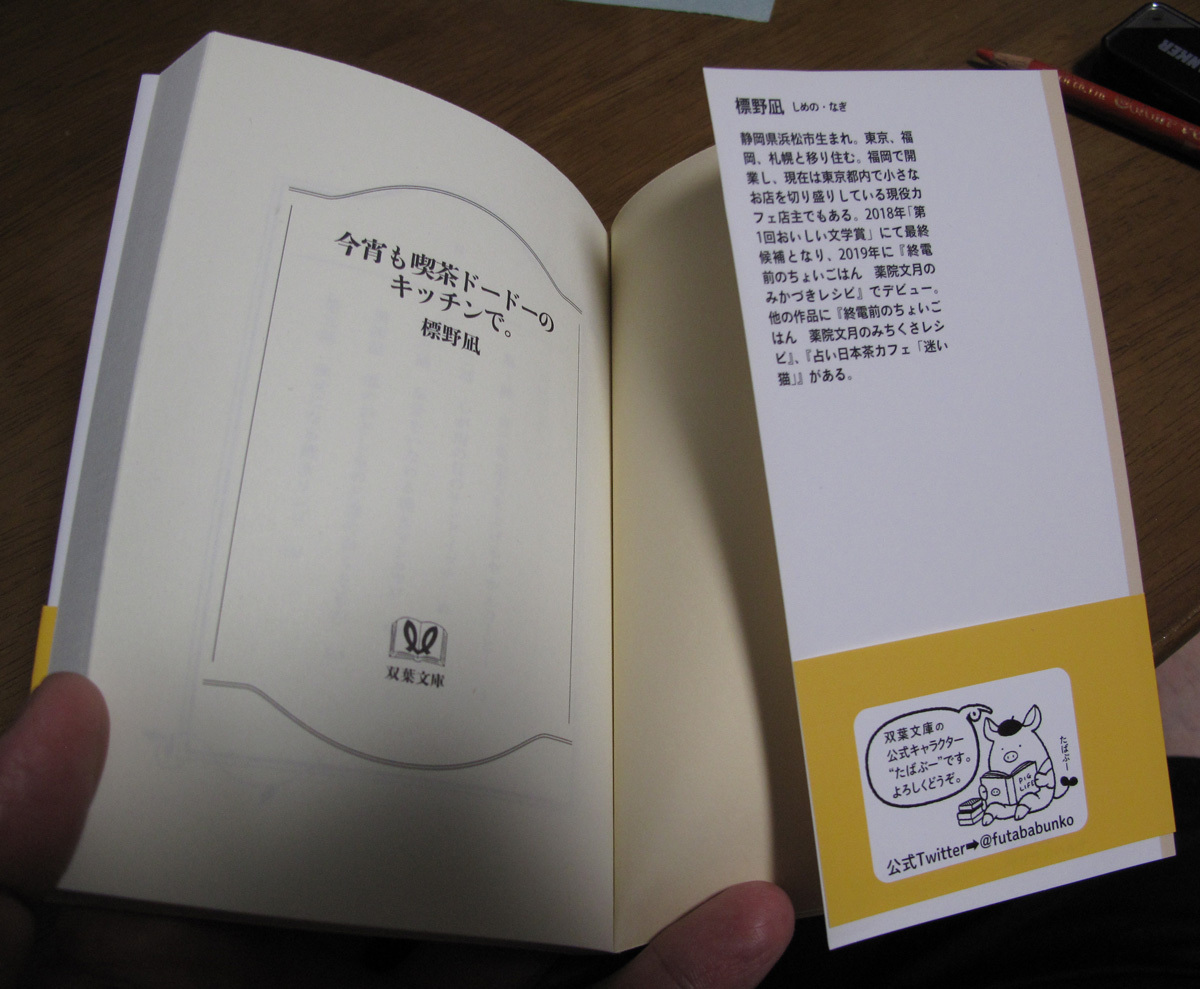 今宵も喫茶ドードーの
キッチンで。
標野凪
双葉文庫
標野凪 しめの・なぎ
静岡県浜松市生まれ。東京、福
岡、札幌と移り住む。福岡で開
業し、現在は東京都内で小さな
お店を切り盛りしている現役カ
フェ店主でもある。2018年「第
1回おいしい文学賞」にて最終
候補となり、2019年に『終電
前のちょいごはん 薬院文月の
みかづきレシピ』でデビュー。
他の作品に『終電前のちょいご
はん 薬院文月のみちくさレシ
ピ』、『占い日本茶カフェ「迷い
猫」』がある。
双葉文庫の
公式キャラクター
“たばぶー”です。
よろしくどうぞ。
たばぶー
PIG
LIFE
公式Twitter➡@futababunko